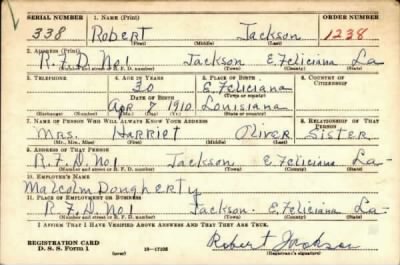 SERIAL NUMBER 1. NAME (Print) ORDER NUMBER
338 Robert Jackson 1238
(First) (Middle) (Last)
2. ADDRESS (Print)
R.F.D. No 1 Jackson E. Feliciana La
(Number and street or R. F. D. number) (Town) (County) (State)
3. TELEPHONE 4. AGE IN YEARS 5. PLACE OF BIRTH 6. COUNTRY OF CITIZENSHIP
30 E. Feliciana
DATE OF BIRTH (Town or county)
Apr 7 1910 Louisiana
(Exchange) (Number) (Mo.) (Day) (Yr.) (State or country)
7. NAME OF PERSON WHO WILL ALWAYS KNOW YOUR ADDRESS 8. RELATIONSHIP OF THAT PERSON
Mrs. Harriet River Sister
(Mr., Mrs., Miss) (First) (Middle) (Last)
9. ADDRESS OF THAT PERSON
R.F.D. No 1 Jackson E. Feliciana La-
(Number and street or R. F. D. number) (Town) (County) (State)
10. EMPLOYER'S NAME
Malcolm Dougherty
11. PLACE OF EMPLOYMENT OR BUSINESS
R.F.D. No 1 Jackson. E. Feliciana La-
(Number and street or R. F. D. number) (Town) (County) (State)
I AFFIRM THAT I HAVE VERIFIED ABOVE ANSWERS AND THAT THEY ARE TRUE.
REGISTRATION CARD
D. S. S. Form 1 16—17105 Robert Jackson
(Registrant's signature)